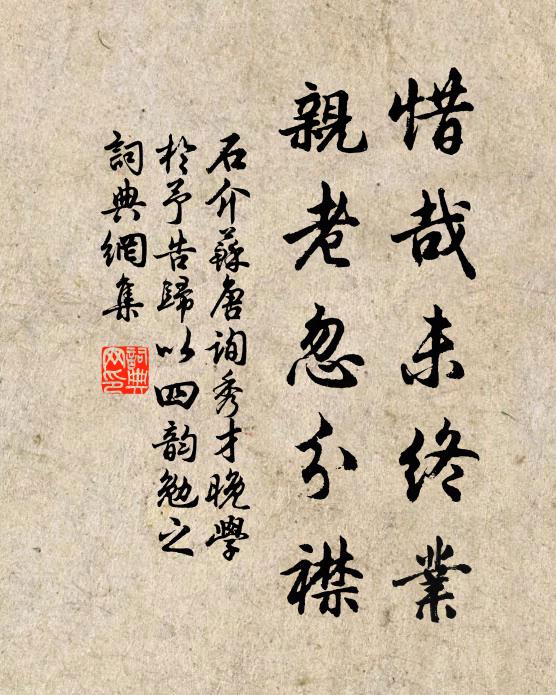 惜哉未終業
親老忽分襟
石介蘇唐詢秀才晚學
於予告歸以四韵勉之
詞典網集
詞典网印